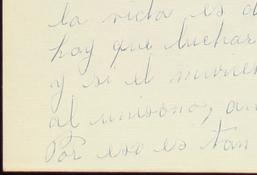 la vida es d
hay que luchar
y si el
al unisono, an
Por eso es tan